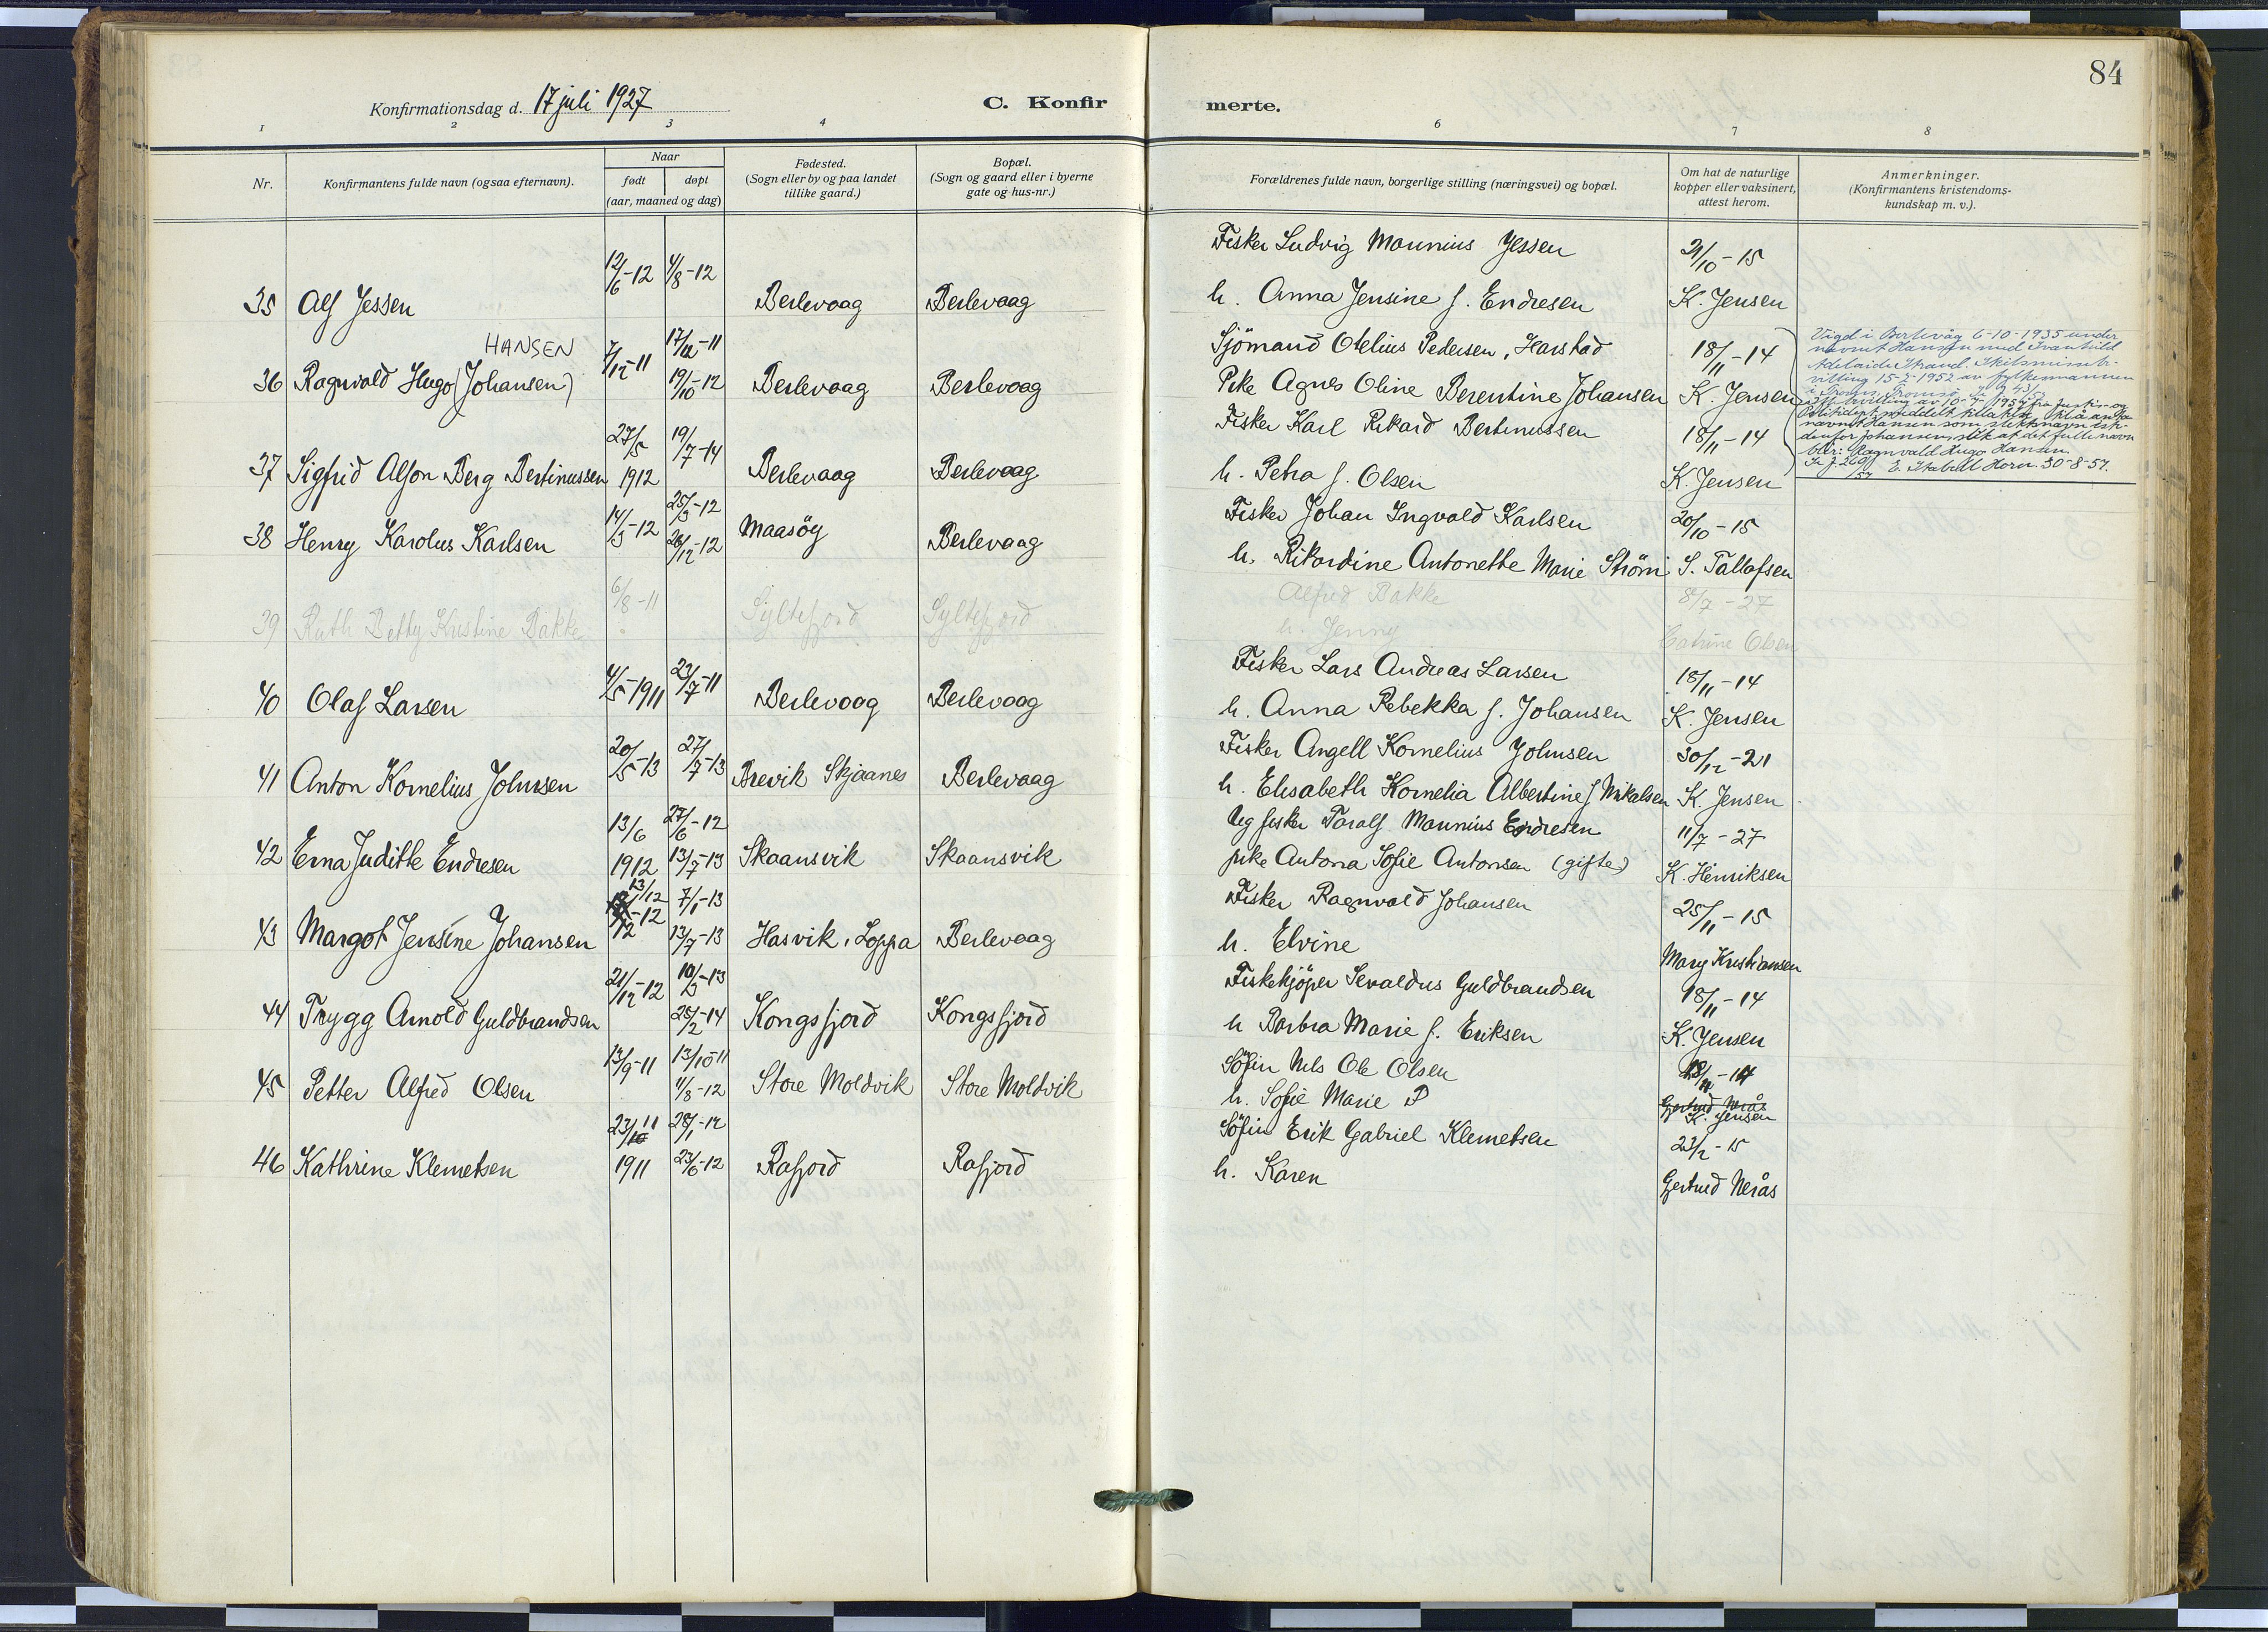 84
Konfirmationsdag d. 17 juli 1927
C. Konfirmerte.
1 2 3 4 6 7 8
Nr.
Konfirmantens fulde navn (ogsaa efternavn).
Naar
født døpt
(aar, maaned og dag)
Fødested.
(Sogn eller by og paa landet
tillike gaard.)
Bopæl.
(Sogn og gaard eller i byerne
gate og hus-nr.)
Forældrenes fulde navn, borgerlige stilling (næringsvei) og bopæl.
Om hat de naturlige
kopper eller vaksinert,
attest herom.
Anmerkninger.
(Konfirmantens kristendoms-
kundskap m. v.).
35 Alf Jessen 12/6-12 4/8-12 Berlevaag Berlevaag
Fisker Ludvig Maunius Jessen 21/10-15
h. Anna Jensine f. Endresen K. Jensen
HANSEN
36 Ragnvald Hugo (Johansen) 7/12-11 17/12-11 19/10-12 Berlevaag Berlevaag
Sjömand Otelius Pedersen, Harstad 18/11-14
Pike Agnes Oline Berentine Johansen K. Jensen
Vigd i Berlevåg 6-10-1935 under
navnet Hansen med
Adelaide Strand. Skilsmisse b-
villing 15-2-1952 av fylkesmannen
i Troms, Tromsø
bevilling av 10-7-1957 fra Justis- og
Politidept. meddelt tillatelse til å anta
navnet Hansen som slektsnavn iste-
denfor Johansen, slik at det fulle navn
blir: Ragnvald Hugo Hansen.
30-8-57.
37 Sigfrid Alfon Berg Bertinussen 27/5 1912 19/7-14 Berlevaag Berlevaag
Fisker Karl Rikard Bertinussen 18/11-14
h. Petra f. Olsen K. Jensen
38 Henry Karolus Karlsen 14/3-12 25/3-12 26/12-12 Maasöy Berlevaag
Fisker Johan Ingvald Karlsen 20/10-15
h. Rikardine Antonette Marie Ström S. Tallafsen
39 Ruth Betty Kristine Bakke 6/8-11 Syltefjord Syltefjord
Alfred Bakke 8/7-27
h. Jenny Catrine Olsen
40 Olaf Larsen 4/5-1911 23/7-11 Berlevaag Berlevaag
Fisker Lars Andreas Larsen 18/11-14
h. Anna Rebekka f. Johansen K. Jensen
41 Anton Kornelius Johnsen 20/5-13 27/7-13 Brevik Skjaanes Berlevaag
Fisker Angell Kornelius Johnsen 30/12-21
h. Elisabeth Kornelia Albertine f Mikalsen K. Jensen
42 Erna Judithe Endresen 13/6 1912 27/6-12 13/7-13 Skaansvik Skaansvik
Ug fisker Toralf Maunius Endresen 11/7-27
pike Antona Sofie Antonsen (gifte) K. Henriksen
43 Margot Jensine Johansen 13/12-12 7/1-13 13/7-13 Hasvik, Loppa Berlevaag
Fisker Ragnvald Johansen 25/11-15
h. Elvine Mary Kristiansen
44 Trygg Arnold Guldbrandsen 21/12-12 10/3-13 28/2-14 Kongsfjord Kongsfjord
Fiskekjöper Sevaldus Guldbrandsen 18/11-14
h Barbra Marie f. Eriksen K. Jensen
45 Petter Alfred Olsen 13/9-11 13/10-11 4/8-12 Store Moldvik Store Moldvik
Söfin Nils Ole Olsen 18/11-14
h. Sofie Marie P Gertrud Nerås
K. Jensen
46 Kathrine Klemetsen 23/11 1911 28/1-12 23/6-12 Rafjord Rafjord
Söfin Erik Gabriel Klemetsen 23/2-15
h. Karen Gertrud Nerås